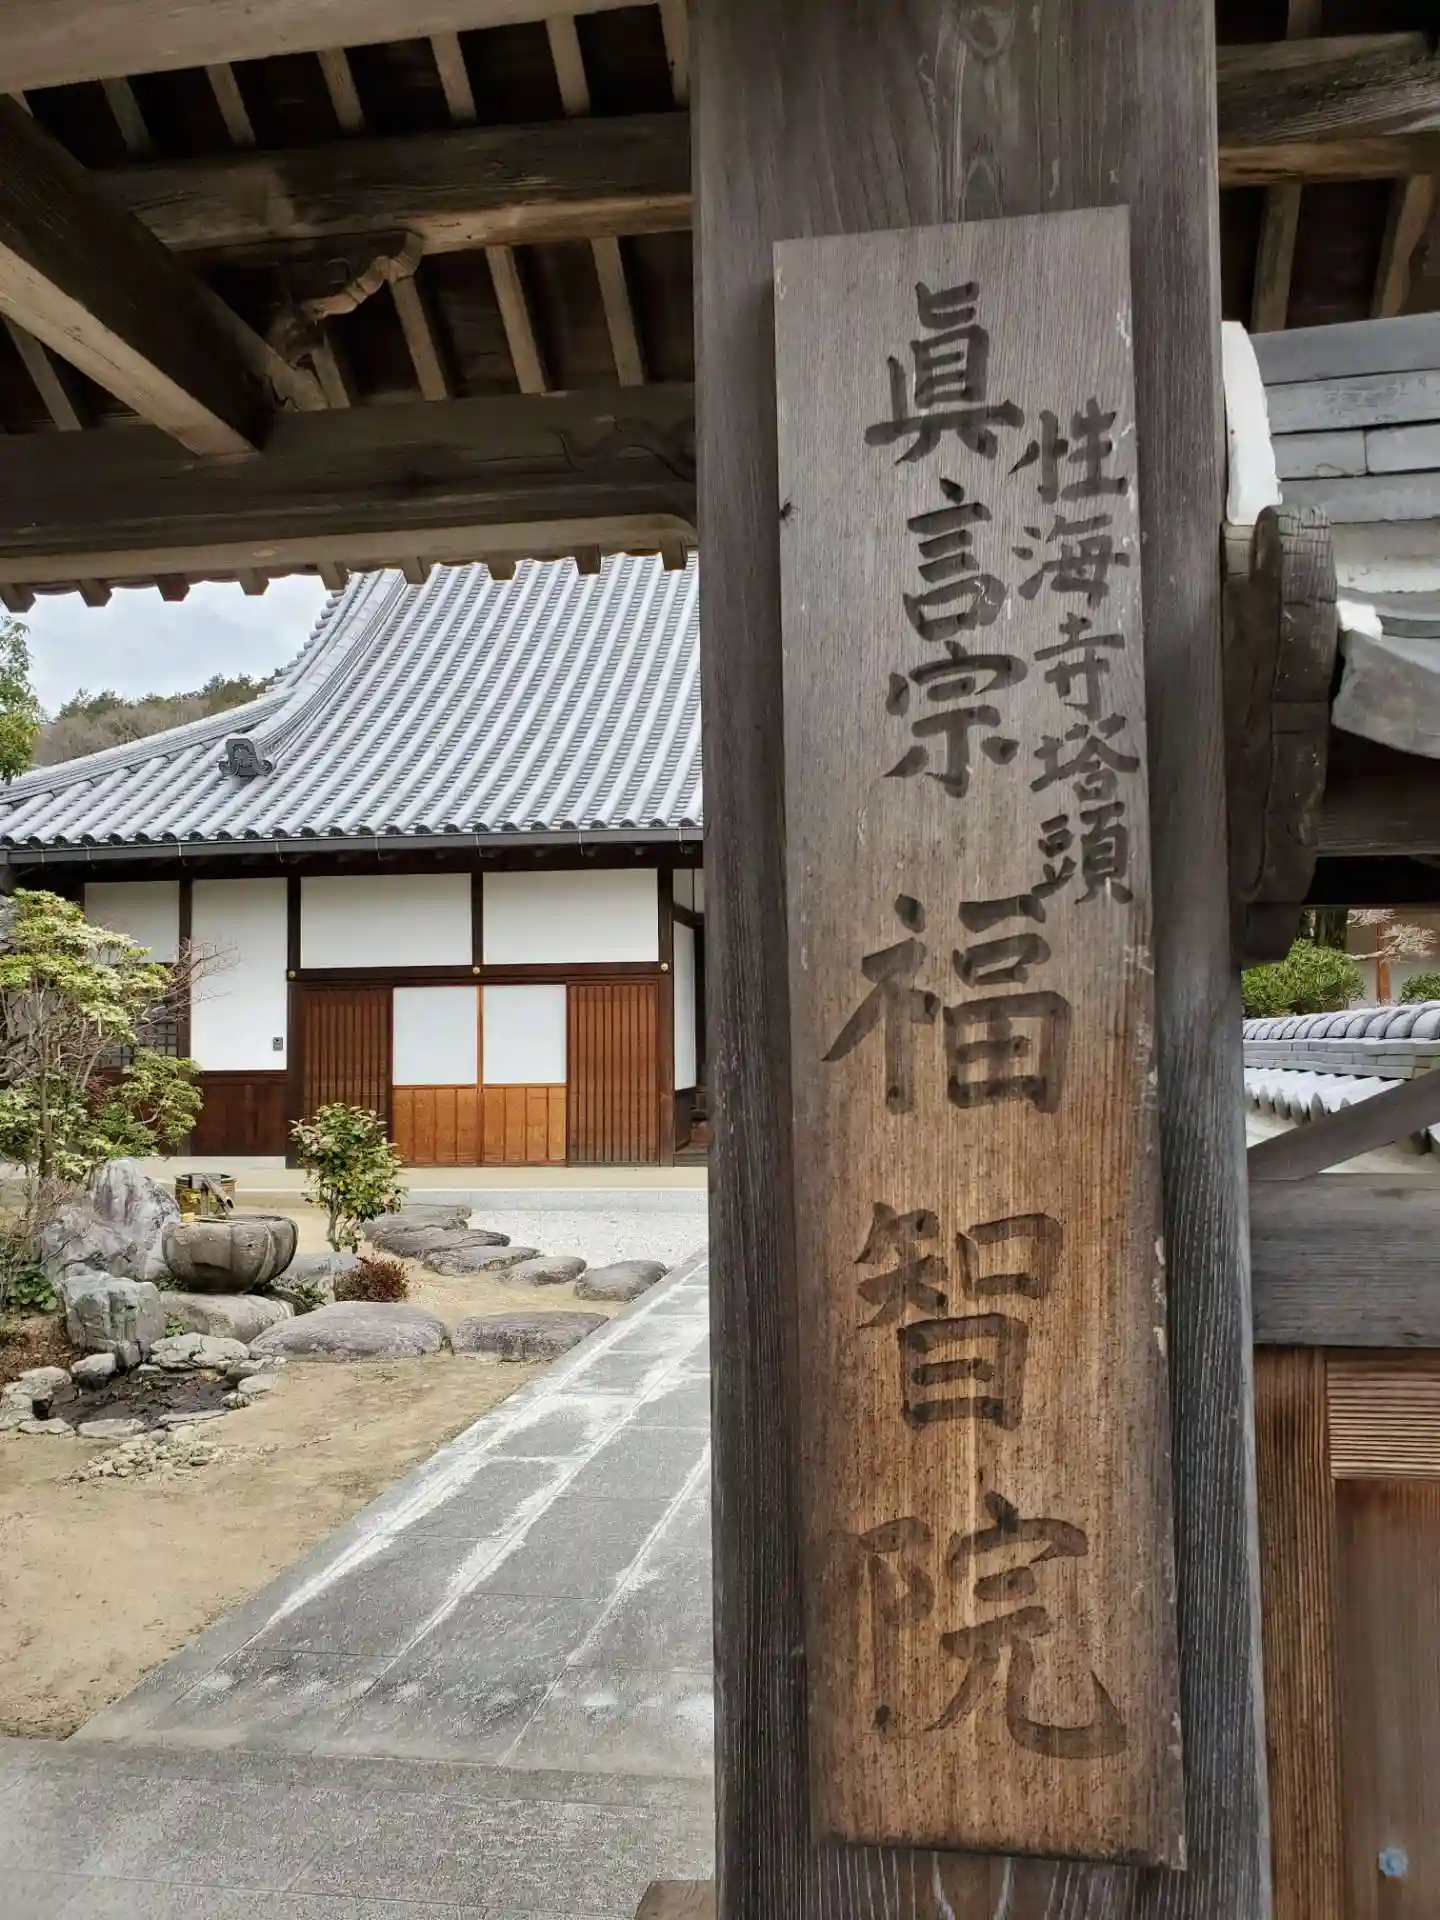 性海寺塔頭
眞言宗福智院